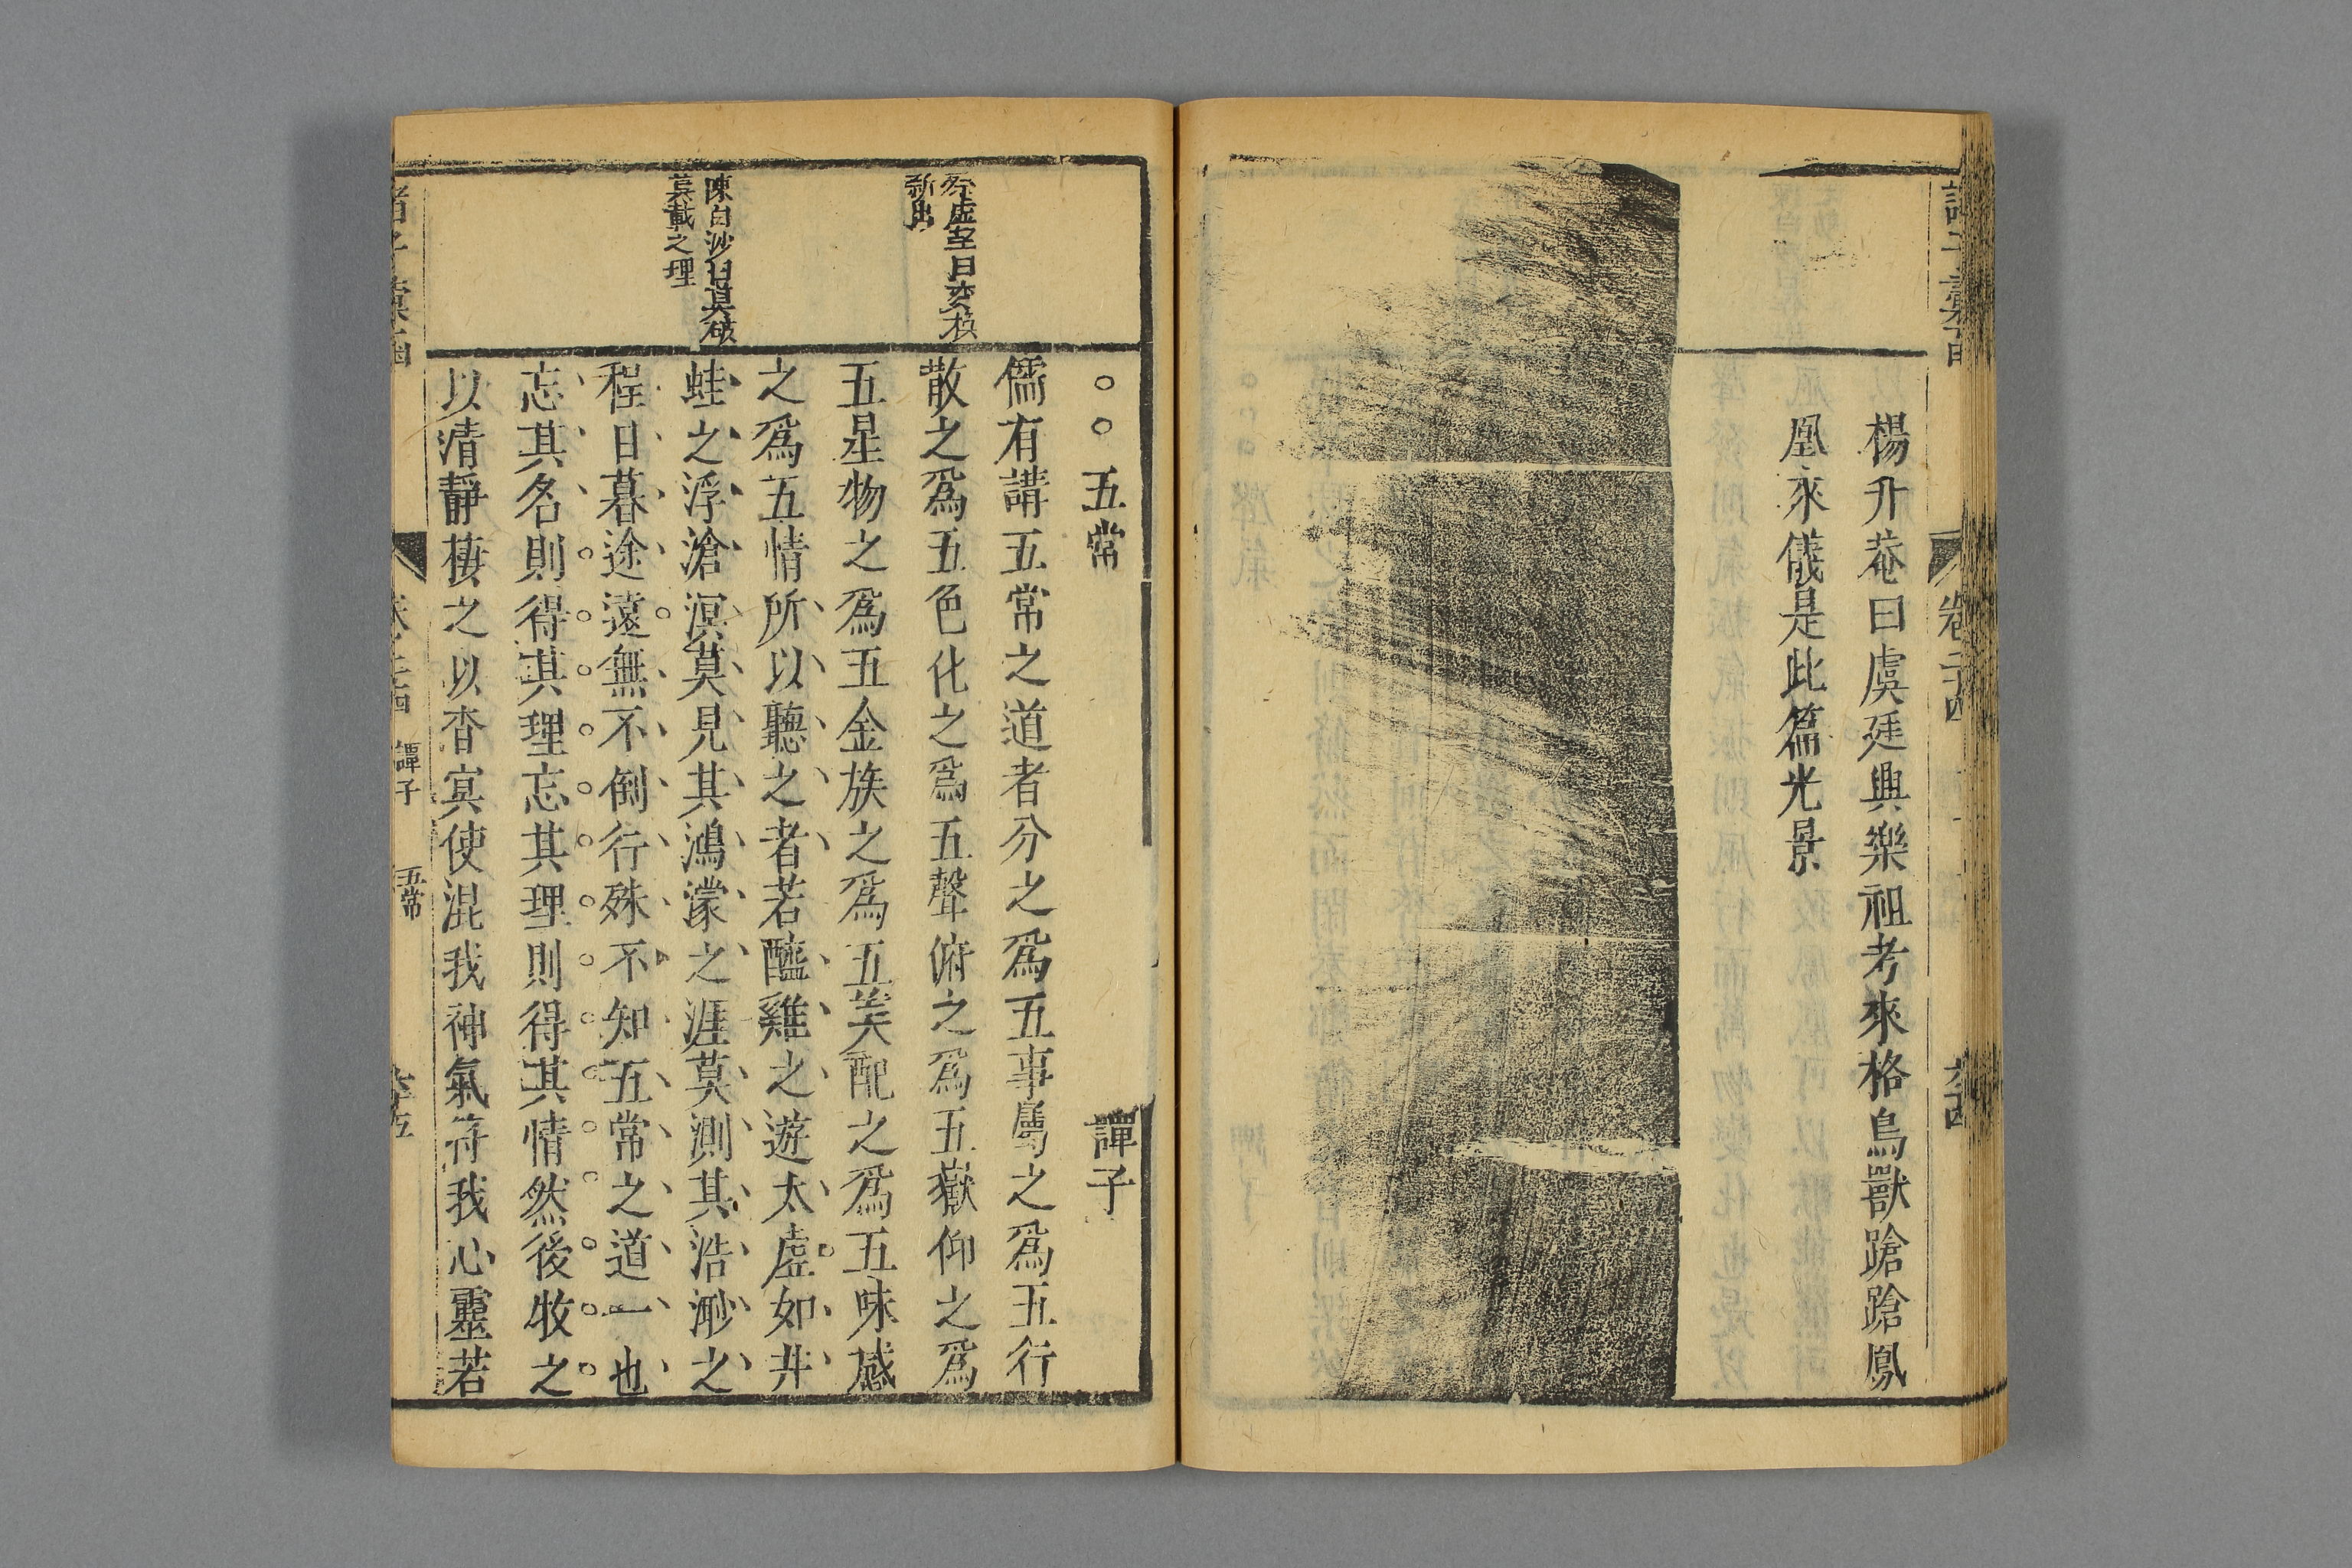 楊升菴曰虞廷興樂祖考來格鳥獸蹌蹌鳳
凰來儀是此篇光景
五常
譚子
儒有講五常之道者分之爲五事屬之爲五行
散之爲五色化之爲五聲俯之爲五嶽仰之爲
五星物之爲五金族之爲五美配之爲五味感
之爲五情所以聽之者若醯雞之遊太虛如井
蛙之浮滄溟莫見其鴻濛之涯莫測其浩渺之
程日暮途遠無不倒行殊不知五常之道一也
忘其名則得其理忘其理則得其情然後牧之
以清靜棲之以杳冥使混我神氣符我心靈若
新出
陳白沙曰真
莫載之理
譚子
五常